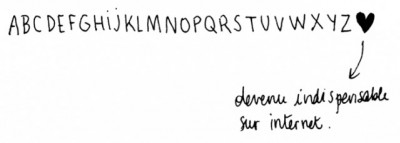 ABCDEFGHIJKLMNOPQRSTUVWXYZ♥
devenu indispensable
sur internet.